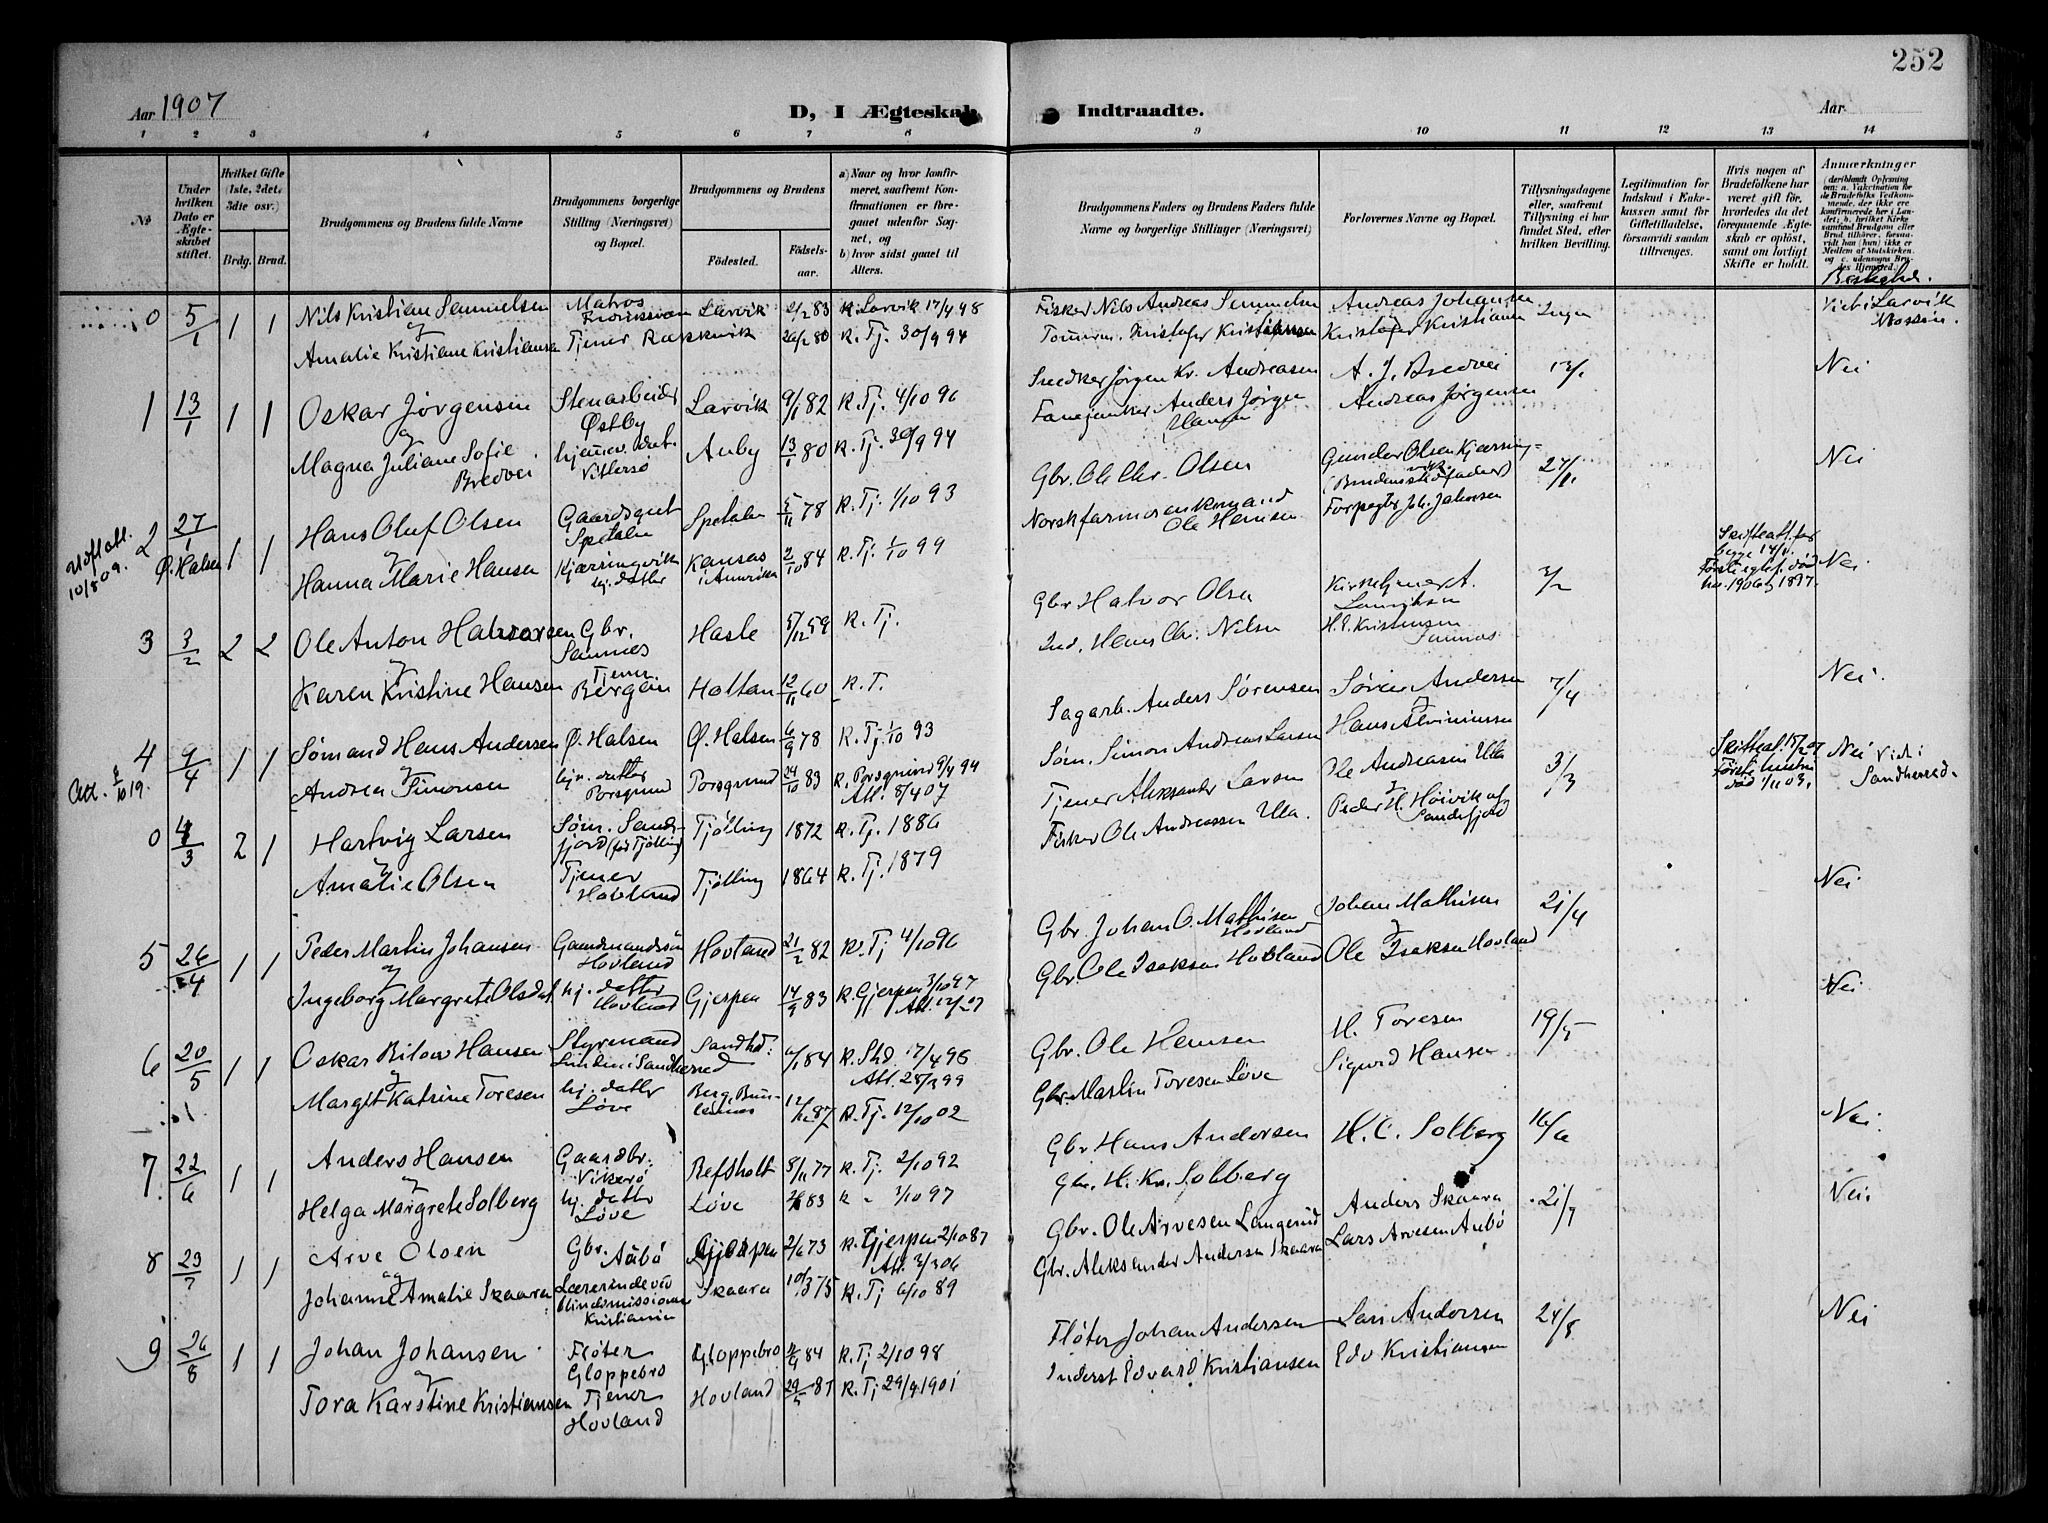 252
Aar 1907
D, I Ægteskab Indtraadte.
Aar
1 2 3 4 5 6 7 8 9 10 11 12 13 14
No
Under hvilken Dato er Ægteskabet stiftet.
Hvilket Gifte (1ste, 2det, 3die osv.)
Brdg. Brud.
Brudgommens og Brudens fulde Navne
Brudgommens borgerlige Stilling (Næringsvei) og Bopæl.
Brudgommens og Brudens
Fødested. Fødselsaar.
a) Naar og hvor konfirmeret, saafremt Konfirmationen er foregaaet udenfor Sognet, og
b) hvor sidst gaaet til Alters.
Brudgommens Faders og Brudens Faders fulde Navne og borgerlige Stillinger (Næringsvei)
Forlovernes Navne og Bopæl.
Tillysningsdagene eller, saafremt Tillysning ei har fundet Sted, efter hvilken Bevilling.
Legitimation for Indskud i Enkekassen samt for Giftetilladelse, forsaavidt saadan tiltrænges.
Hvis nogen af Brudefolkene har været gift før, hvorledes da det foregaaende Ægteskab er opløst, samt om lovligt Skifte er holdt.
Anmærkninger
0 5/1 1 1 Nils Kristian Samuelsen Matros Fredriksværn Larvik 2/2 83 K. Larvik 17/4 98
og
Amalie Kristiane Kristiansen Tjener Rakkevik 26/2 80 K. Tj. 30/9 94
Fisker Nils Andreas Samuelsen Andreas Johansen Ingen Viet i Larvik
Tømrm. Kristofer Kristiansen Kristofer Kristiansen
1 13/1 1 1 Oskar Jørgensen Stenarbeider Østby Larvik 9/1 82 K. Tj. 4/10 96
og
Magna Juliane Sofie Bredvei hjemmev. dat. Vittersø Auby 13/1 80 K. Tj. 30/9 94
Snedker Jørgen Kr. Andreasen A. J. Bredvei 13/1 Nei
Fanejunker Anders Jørgen Hansen Andreas Jørgensen
2 27/1 Ø. Halsen 1 1 Hans Oluf Olsen Gaardsgut Spetalen Spetalen 5/11 78 K. Tj. 1/10 93
10/8 09.
og
Hanna Marie Hansen Kjærringvik hj. datter Kansas i Amerika 2/10 84 K. Tj. 1/10 99
Gbr. Ole Chr. Olsen Gunder Olsen Kjærringvik (Brudens stedfader) 27/1. Nei
Norsk farmor enkemand Ole Hansen
3 3/2 2 2 Ole Anton Halvorsen Gbr. Sannes Hasle 5/12 59 K. Tj.
og
Karen Kristine Hansen Tjener Bergan Holtan 12/11 60 K. T.
Gbr Halvor Olsen 3/2 Nei
Ind. Hans Chr. Nilsen H. E. Kristensen Sannes
4 7/4 1 1 Sømand Hans Andersen Ø. Halsen Ø. Halsen 6/9 78 K. Tj. 1/10 93
og
Andrea Simonsen hj. datter Porsgrund Porsgrund 24/10 83 K. Porsgrund 9/4 94
Att. 8/4 07
Sagarb. Anders Sørensen Søren Andersen 7/4 Nei
Søm. Simon Andreas Larsen
0 4/3 2 1 Hartvig Larsen Søm. Sandefjord (før Tjølling) Tjølling 1872 K. Tj. 1886
og
Amalie Olsen Tjener Hovland Tjølling 1864 K. Tj. 1879
Tjener Aleksander Larsen Ole Andreasen Ula 3/3 Nei Viet i Sandherred.
Fisker Ole Andreassen Ula. Peder H. Høivik af Sandefjord
5 26/4 1 1 Peder Martin Johansen Gaardmandssøn Hovland Hovland 21/2 82 K. Tj 4/10 96
og
Ingeborg Margrete Olsdat. hj. datter Hovland Gjerpen 14/9 83 K. Gjerpen 3/10 97
Gbr. Johan O. Mathisen Hovland Johan Mathisen 21/4 Nei
Gbr. Ole Isaksen Hovland Ole Isaksen Hovland
6 20/5 1 1 Oskar Bilow Hansen Styrmand
og
Margit Katrine Toresen hj. datter Løve 12/12 87 K. Tj. 12/10 02
Gbr. Ole Hansen H. Toresen 19/5 Nei
Gbr. Martin Toresen Løve Sigurd Hansen
7 22/6 1 1 Anders Hansen Gaardbr. Vikerø Refsholt 8/11 77 K. Tj. 2/10 92
og
Helga Margrete Solberg hj. datter Løve Løve 83 K " 1/10 97
Gbr Hans Andersen H. C. Solberg 16/6 Nei.
Gbr. H. Kr. Solberg
8 23/7 1 1 Arve Olsen Gbr. Aabø Gjerpen 2/6 73 K. Gjerpen 2/10 87
Att. 3/3 06
og
Johanne Amalie Skaara Lærerinde ved blindemissionen Kristiania Skaara 10/3 75 K. Tj 6/10 89
Gbr. Ole Arvesen Langerud Anders Skaara 21/7 Nei
Gbr. Aleksander Andersen Skaara Lars Arvesen Aabø
9 26/8 1 1 Johan Johansen Fløter Gloppebro Gloppebro 84 K. Tj 2/10 98
og
Tora Karstine Kristiansen Tjener Hovland Hovland 29/5 87 K. Tj 29/9 1901
Fløter Johan Andersen Lars Andersen 24/8 Nei
Inderst Edvard Kristiansen Edv Kristiansen